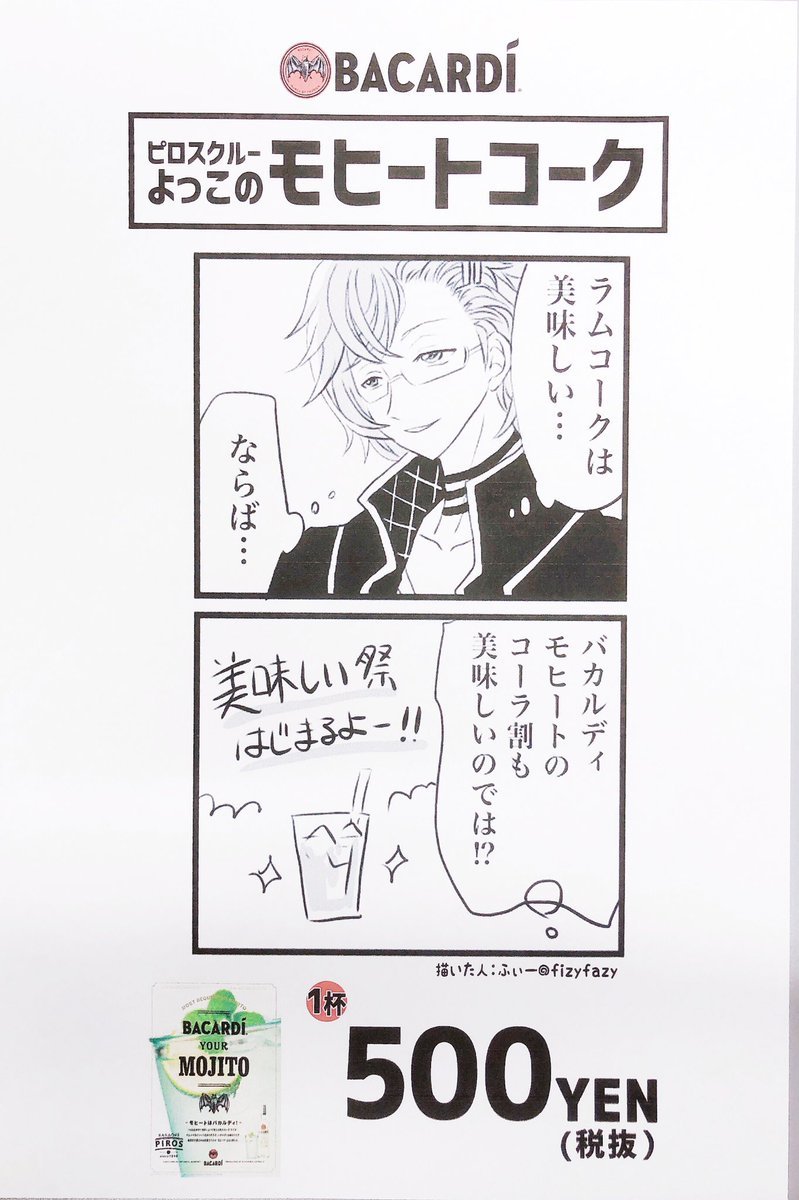 BACARDÍ
ピロスクルー
よっこの
モヒートコーク
ラムコークは
美味しい…
ならば…
バカルディ
モヒートの
コーラ割も
美味しいのでは!?
美味しい祭
はじまるよー!!
描いた人:ふぃー@fizyfazy
BACARDÍ
YOUR
MOJITO
-モヒートはバカルディ!-
PIROS
BACARDÍ
1杯
500YEN
(税抜)